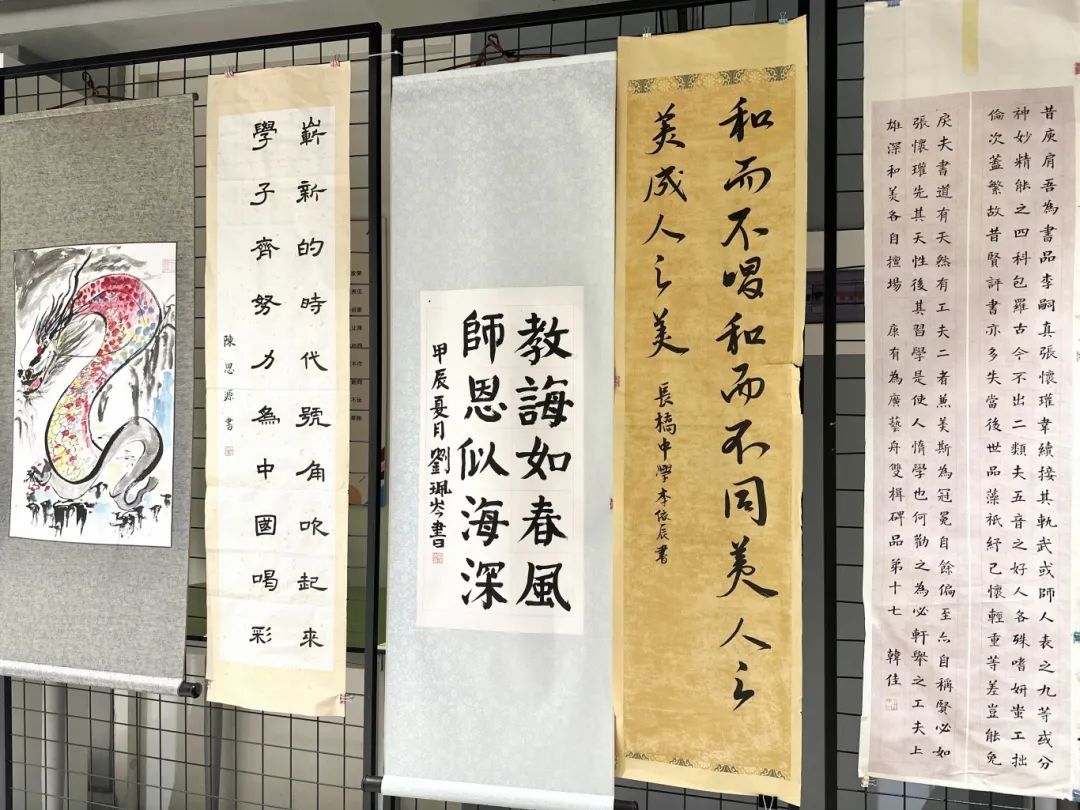 嶄新的時代號角吹起來
學子齊努力為中國喝彩
陳思源書
教誨如春風
師恩似海深
甲辰夏月劉珮岑書
和而不唱和而不同美人之
美成人之美
長橋中學李依辰書
昔庾肩吾為書品李嗣真張懷瓘韋續接其軌武或師人表之九等或分
神妙精能之四科包羅古今不出二類夫五音之好人各殊嗜妍蚩工拙
倫次蓋繁故昔賢評書亦多失當後世品藻祇紓己懷輕重等差豈能免
戾夫書道有天然有工夫二者兼美斯為冠冕自餘偏至亦自稱賢必如
張懷瓘先其天性後其習學是使人惰學也何勸之為必軒舉之工夫上
雄深和美各自擅場 康有為廣藝舟雙楫碑品第十七 韓佳